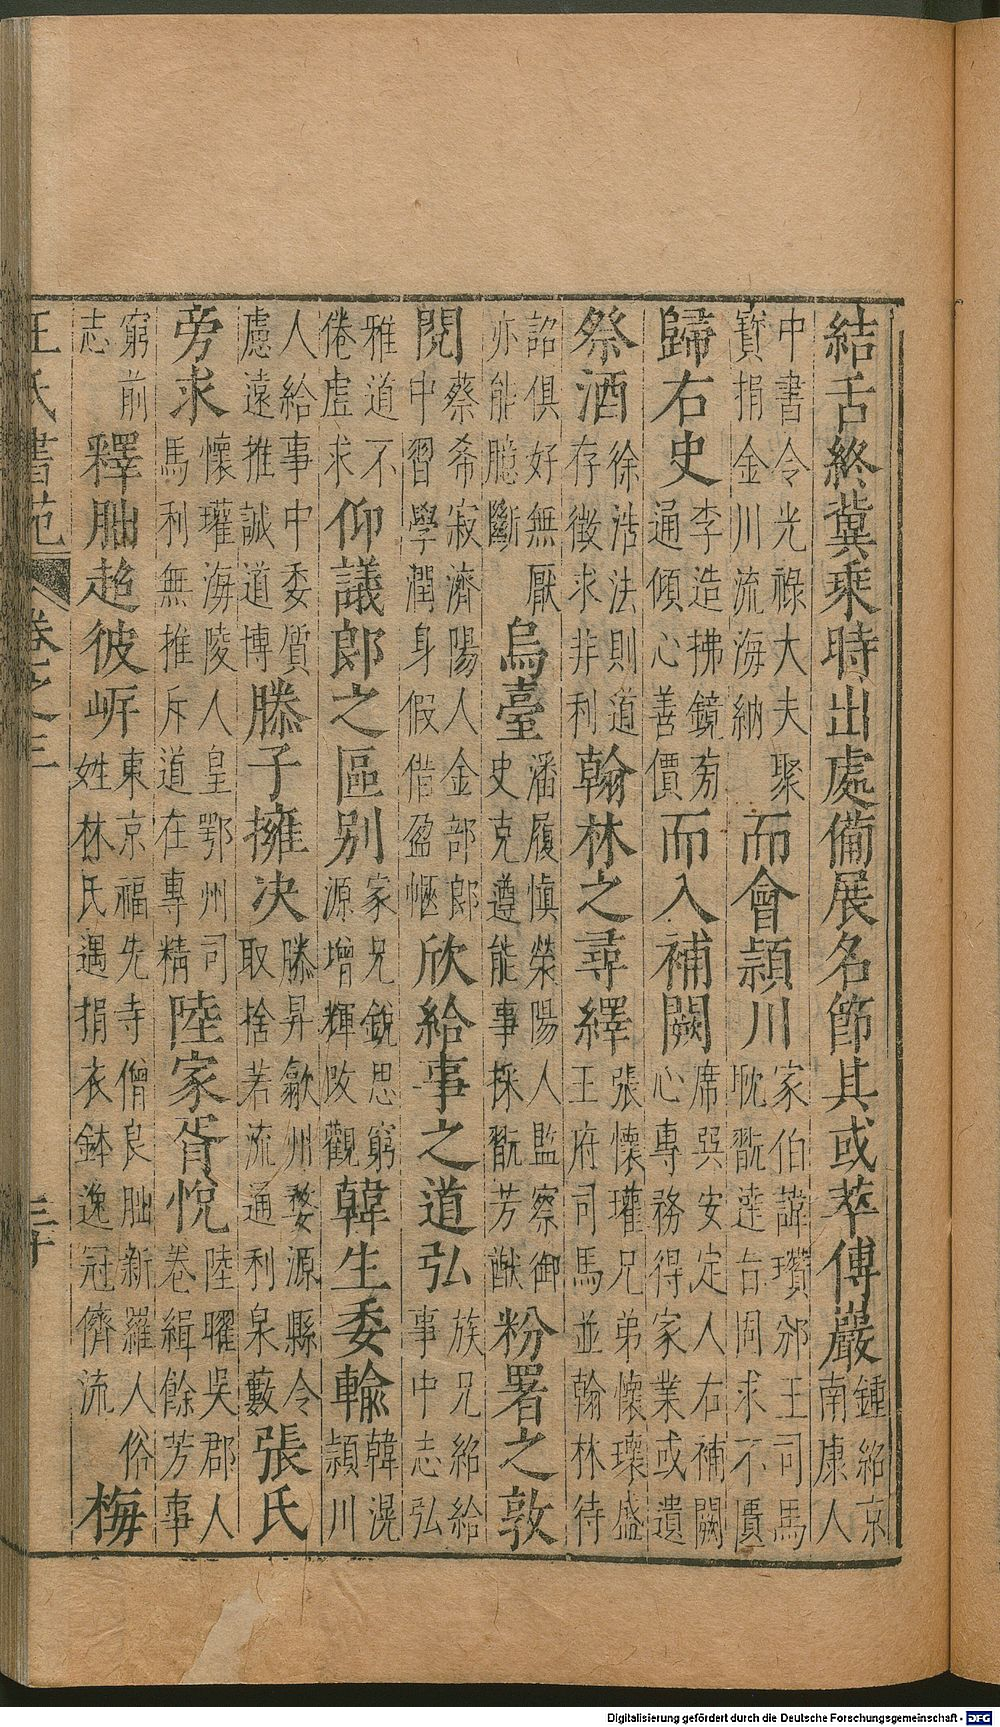 結舌終冀乘時出處備展名節其或萃傅巖鍾紹京南康人
中書令光祿大夫聚寶捐金川流海納而會潁川家伯諱瓚邠王司馬耽翫達旨罔求不匱
歸右史李造拂鏡菊通傾心善價而入補闕席巽安定人右補闕心專務得家業或遺
祭酒徐浩法則道存徵求非利翰林之尋繹張懷瓘兄弟懷瓌盛王府司馬並翰林待
詔俱好無厭亦能臆斷烏臺潘履慎滎陽人監察御史克遵能事採翫芳猷粉署之敦
閱蔡希寂濟陽人金部郎中習學潤身假借盈愜欣給事之道弘族兄紹給事中志弘
雅道不倦虛求仰議郎之區別家兄銳思窮源增輝改觀韓生委輸韓滉潁川
人給事中委質慮遠推誠道博滕子擁決滕昇歙州婺源縣令取捨若流通利泉藪張氏
旁求懷瓘海陵人皇鄂州司馬利無推斥道在專精陸家胥悅陸曜吳郡人卷緝餘芳事
窮前志釋朏超彼岍東京福先寺僧良朏新羅人俗姓林氏遇捐衣鉢逸冠儕流梅
王氏書苑 卷之三 三十
Digitalisierung gefördert durch die Deutsche Forschungsgemeinschaft - DFG